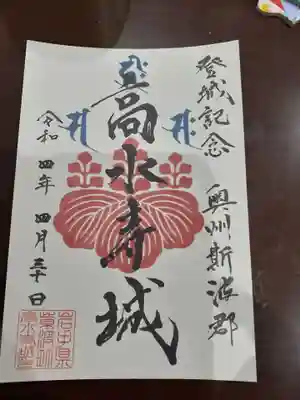 登城記念 奥州斯波郡
高水寺城
令和四年 四月三十日
岩手県